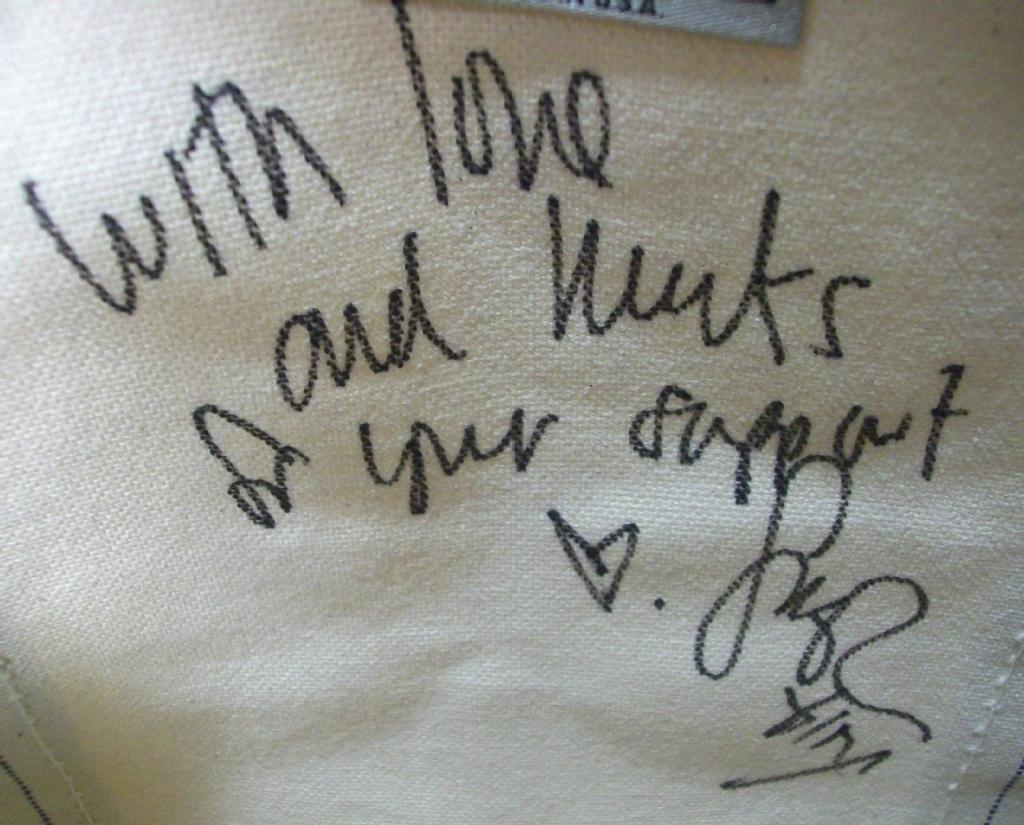 U.S.A.
With love
and thanks
for your support